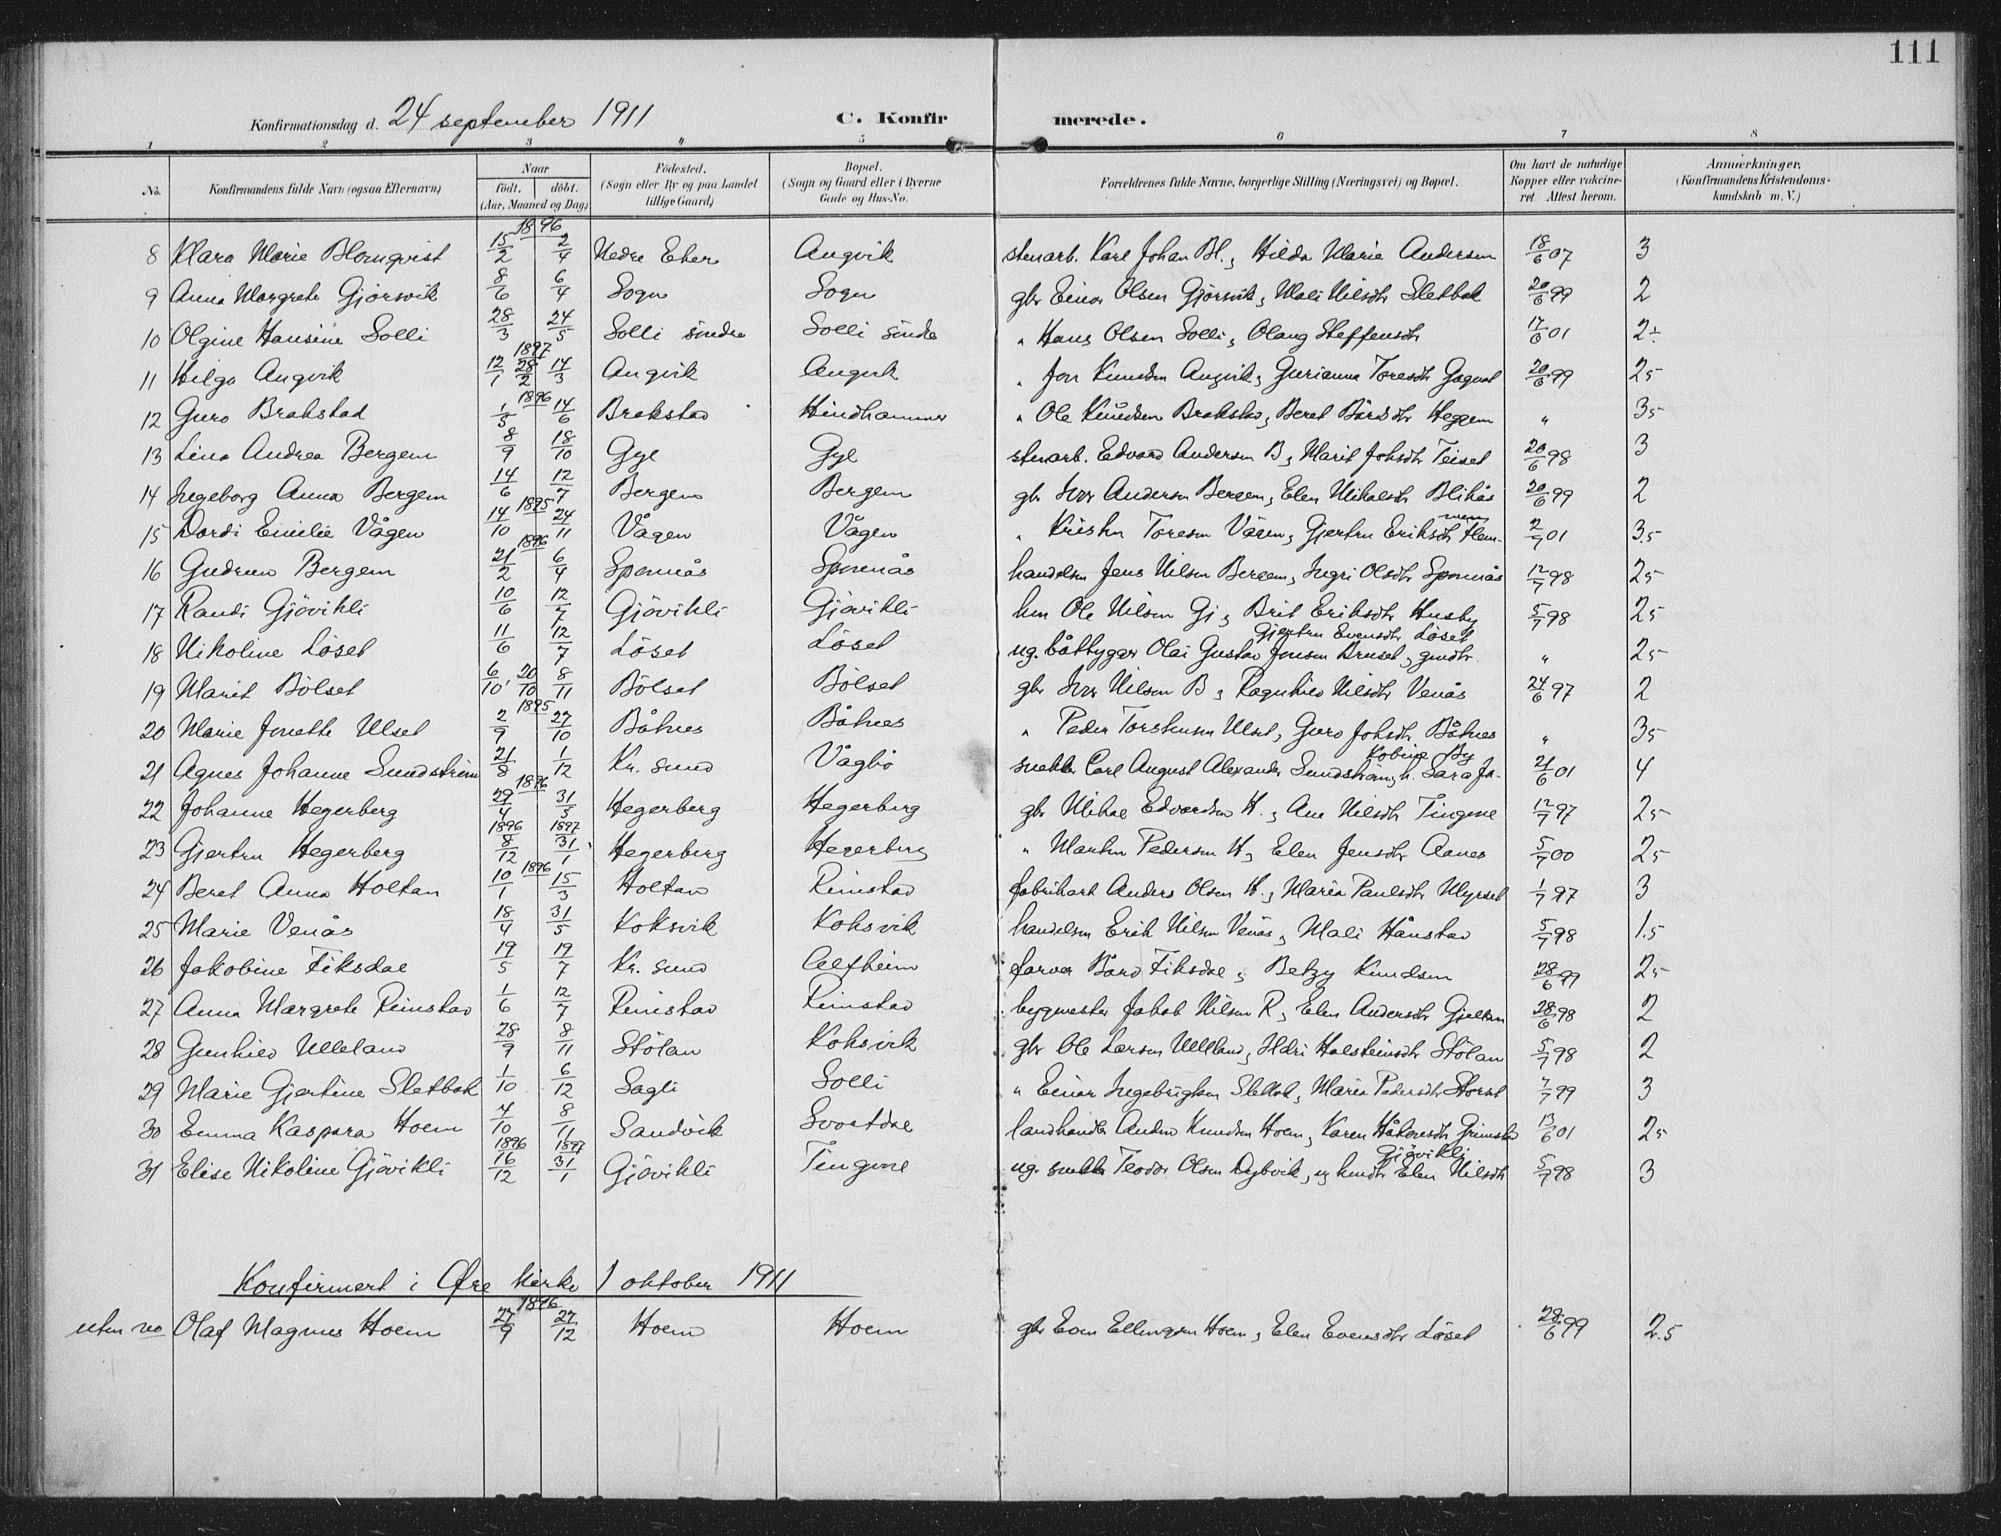 111
Konfirmationsdag d. 24 september 1911 C. Konfirmerede.
1 2 3 4 5 6 7 8
No. Konfirmandens fulde Navn (ogsaa Efternavn) Naar født. døbt. (Aar, Maaned og Dag) Fødested. (Sogn eller By og paa Landet tillige Gaard) Bopæl. (Sogn og Gaard eller i Byerne Gade og Hus-No. Forældrenes fulde Navne, borgerlige Stilling (Næringsvei) og Bopæl. Om havt de naturlige Kopper eller vakcineret. Attest herom. Anmærkninger. (Konfirmandens Kristendomskundskab m. V.)
1896
8 Klara Marie Blomqvist 15/2 2/4 Nedre Eker Angvik stenarb. Karl Johan Bl., Hilda Marie Andersen 18/6 07 3
9 Anna Margrete Gjørsvik 8/6 6/4 Sogn Sogn gbr Einar Olsen Gjørsvik, Mali Nilsdtr Sletbak 20/6 99 2
10 Olgine Hansine Solli 28/3 24/5 Solli söndre Solli söndre " Hans Olsen Solli, Olaug Steffensdtr 17/6 01 2
1897
11 Helga Angvik 12/1 28/2 14/3 Angvik Angvik " Jon Knudsen Angvik, Gurianna Toresdtr 20/6 99 25
1896
12 Guro Brakstad 1/5 14/6 Brakstad Hindhammer " Ole Knudsen Brakstad, Beret Bårdsdtr Heggem " 35
13 Lina Andrea Bergem 8/9 18/10 Gyl Gyl stenarb. Edvard Andersen B, Marit Johsdtr Teiset 20/6 98 3
14 Ingeborg Anna Bergem 14/6 12/7 Bergem Bergem gbr Iver Andersen Bergem, Elen Mikalsdtr Blikås 20/6 99 2
1895
15 Dordi Emilie Vågen 14/10 24/11 Vågen Vågen " Kristen Toresen Vågen, Gjertru Eriksdtr Flemmen 2/7 01 3.5
1896
16 Gudrun Bergem 21/2 6/4 Spennås Spennås handelsm Jens Nilsen Bergem, Ingri Olsdtr Spennås 12/7 98 25
17 Randi Gjövikli 10/6 12/7 Gjövikli Gjövikli hm Ole Nilsen Gj, Brit Eriksdtr Husby 5/7 98 25
18 Nikoline Löset 11/6 12/7 Löset Löset ug. båtbygger Olai Gustav Jensen Bruset, gmdtr. Gjertru Evensdtr Löset " 25
19 Marit Bölset 6/10, 20/10 8/11 Bölset Bölset gbr Iver Nilsen B, Ragnhild Nilsdtr Venås 24/6 97 2
1895
20 Marie Jonette Ulset 2/9 27/10 Båtnes Båtnes " Peder Torstensen Ulset, Guro Johsdtr Båtnes " 35
21 Agnes Johanne Sundström 21/8 1/12 Kr. sund Vågbö snekker Carl August Alexander Sundström, h. Sara Jakobine By 21/6 01 4
1896
22 Johanne Hegerberg 29/4 31/5 Hegerberg Hegerberg gbr Mikal Edvardsen H., Ane Nilsdtr Tingvoll 12/7 97 25
1896 1897
23 Gjertru Hegerberg 8/12 31/1 Hegerberg Hegerberg " Marten Pedersen H, Elen Jensdtr Aanes 5/7 00 25
1896
24 Beret Anna Holtan 10/1 15/3 Holtan Rimstad fabrikarb Anders Olsen H., Maria Paulsdtr Myrset 1/7 97 3
25 Marie Venås 18/4 31/5 Koksvik Koksvik handelsm Erik Nilsen Venås, Mali Hånstad 5/7 98 1.5
26 Jakobine Fiksdal 19/5 19/7 Kr. sund Alfheim farver Bård Fiksdal, Betzy Knudsen 28/6 99 25
27 Anna Margrete Rimstad 1/6 12/7 Rimstad Rimstad bygmester Jakob Nilsen R, Elen Andersdtr 28/6 98 2
28 Gunhild Ulleland 28/9 8/11 Stölan Koksvik gbr Ole Larsen Ulleland, Ildri Halsteinsdtr Stölan 5/7 98 2
29 Marie Gjertine Sletbak 1/10 6/12 Sagli Solli " Einar Ingebrigtsen Sletbak, Maria Pedersdtr Storset 7/7 99 3
30 Emma Kaspara Hoem 4/10 8/11 Sandvik Svartdal landhandler Andreas Knudsen Hoem, Karen Håkensdtr Grimstad 13/6 01 25
1896 1897
31 Elise Nikoline Gjövikli 16/12 31/1 Gjövikli Tingvoll ug. snekker Teodor Olsen Dybvik, ug kmdtr Elen Nilsdtr Gjövikli 5/7 98 3
Konfirmert i Øre kirke 1 oktober 1911
1896
uten no Olaf Magnus Hoem 27/9 27/12 Hoem Hoem gbr Even Ellingsen Hoem, Elen Evensdtr Löset 28/6 99 2.5